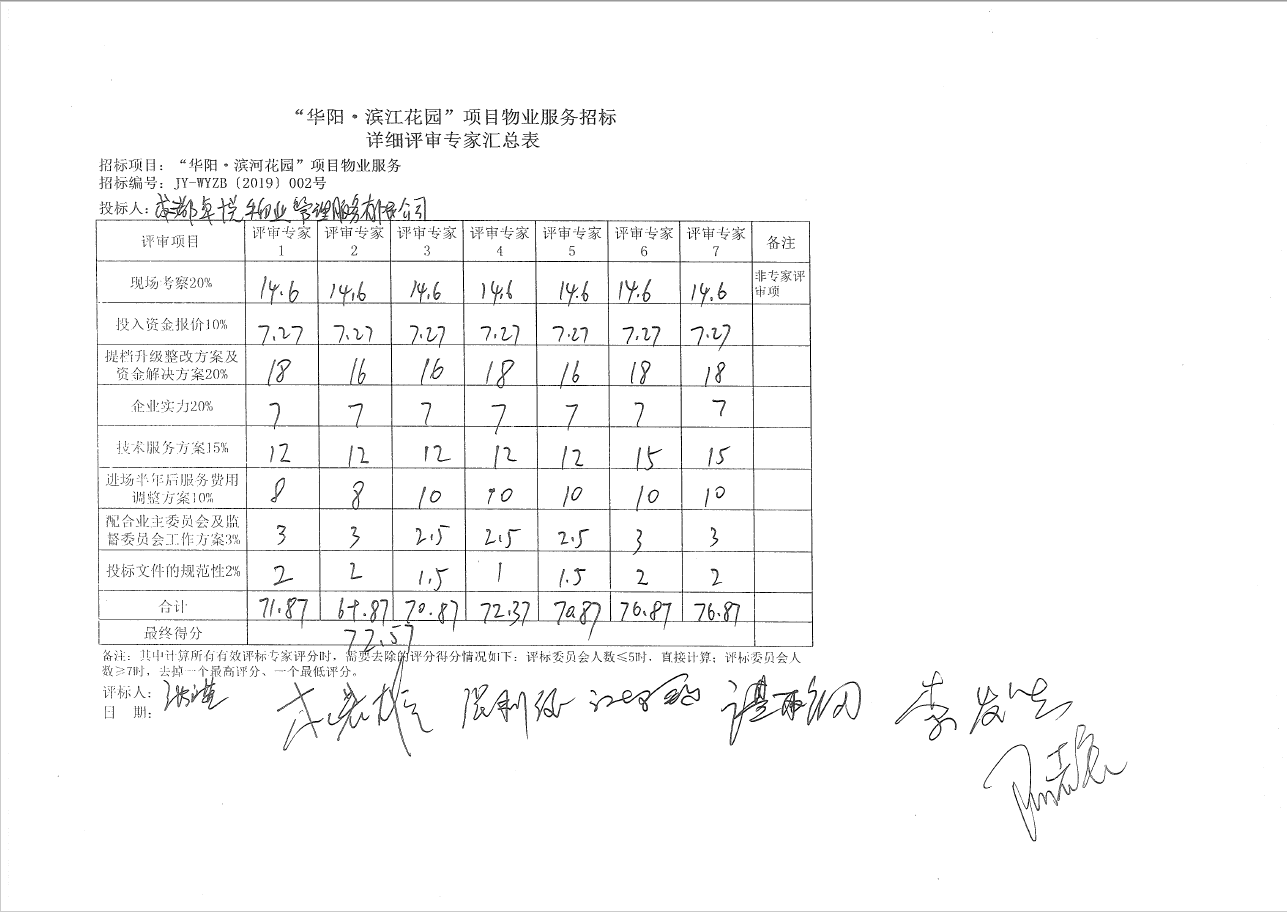 “华阳·滨江花园”项目物业服务招标
详细评审专家汇总表
招标项目：“华阳·滨河花园”项目物业服务
招标编号：JY-WYZB〔2019〕002号
投标人：成都卓悦物业管理服务有限公司
评审项目 评审专家1 评审专家2 评审专家3 评审专家4 评审专家5 评审专家6 评审专家7 备注
现场考察20% 14.6 14.6 14.6 14.6 14.6 14.6 14.6 非专家评审项
投入资金报价10% 7.27 7.27 7.27 7.27 7.27 7.27 7.27
提档升级整改方案及资金解决方案20% 18 16 16 18 16 18 18
企业实力20% 7 7 7 7 7 7 7
技术服务方案15% 12 12 12 12 12 15 15
进场半年后服务费用调整方案10% 8 8 10 10 10 10 10
配合业主委员会及监督委员会工作方案3% 3 3 2.5 2.5 2.5 3 3
投标文件的规范性2% 2 2 1.5 1 1.5 2 2
合计 71.87 69.87 70.87 72.37 70.87 76.87 76.87
最终得分 72.57
备注：其中计算所有有效评标专家评分时，需要去除的评分得分情况如下：评标委员会人数≤5时，直接计算；评标委员会人
数≥7时，去掉一个最高评分、一个最低评分。
评标人：
日 期：